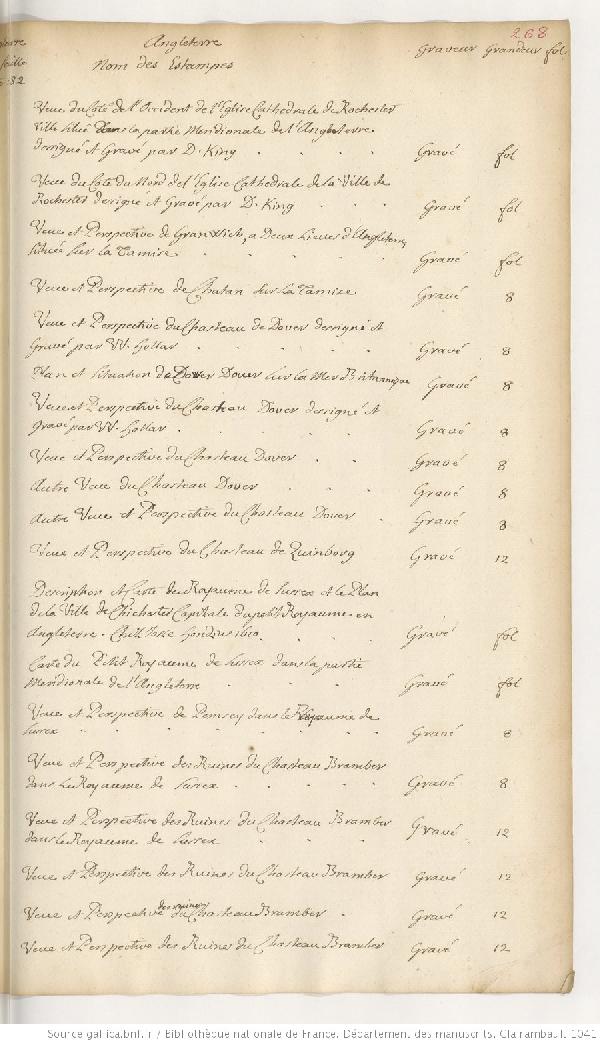 268
Angleterre
Nom des Estampes Graveur Grandeur fol
32
Veue du Coté de l'Occident de l'Eglise Cathedrale de Rochester
Ville située dans la partie Meridionale de l'Angleterre
designé et Gravé par D. King Gravé fol
Veue du Coté du Nord de l'Eglise Cathedrale de la Ville de
Rochester designé et Gravé par D. King Gravé fol
Veue et Perspective de Granwich, a Deux Lieues d'Angleterre
située sur la Tamise Gravé fol
Veue et Perspective de Chatan sur la Tamise Gravé 8
Veue et Perspective du Chasteau de Dover designé et
Gravé par W. Hollar Gravé 8
Plan et situation de Dover Douer sur la Mer Britannique Gravé 8
Veue et Perspective du Chasteau Dover designé et
gravé par W. Hollar Gravé 8
Veue et Perspective du Chasteau Dover Gravé 8
Autre Veue du Chasteau Dover Gravé 8
Autre Veue et Perspective du Chasteau Dover Gravé 8
Veue et Perspective du Chasteau de Quinborg Gravé 12
Description et Carte du Royaume de Sussex et le Plan
de la Ville de Chichester Capitale du petit Royaume en
Angleterre. Hondius 1610 Gravé fol
Carte du Petit Royaume de Sussex dans la partie
Meridionale de l'Angleterre Gravé fol
Veue et Perspective de Pemsey dans le Royaume de
Sussex Gravé 8
Veue et Perspective des Ruines du Chasteau Bramber
dans le Royaume de Sussex Gravé 8
Veue et Perspective des Ruines du Chasteau Bramber
dans le Royaume de Sussex Gravé 12
Veue et Perspective des Ruines du Chasteau Bramber Gravé 12
Veue et Perspective des ruines du Chasteau Bramber Gravé 12
Veue et Perspective des Ruines du Chasteau Bramber Gravé 12
Source gallica.bnf.fr / Bibliothèque nationale de France. Département des manuscrits. Clairambault 1041